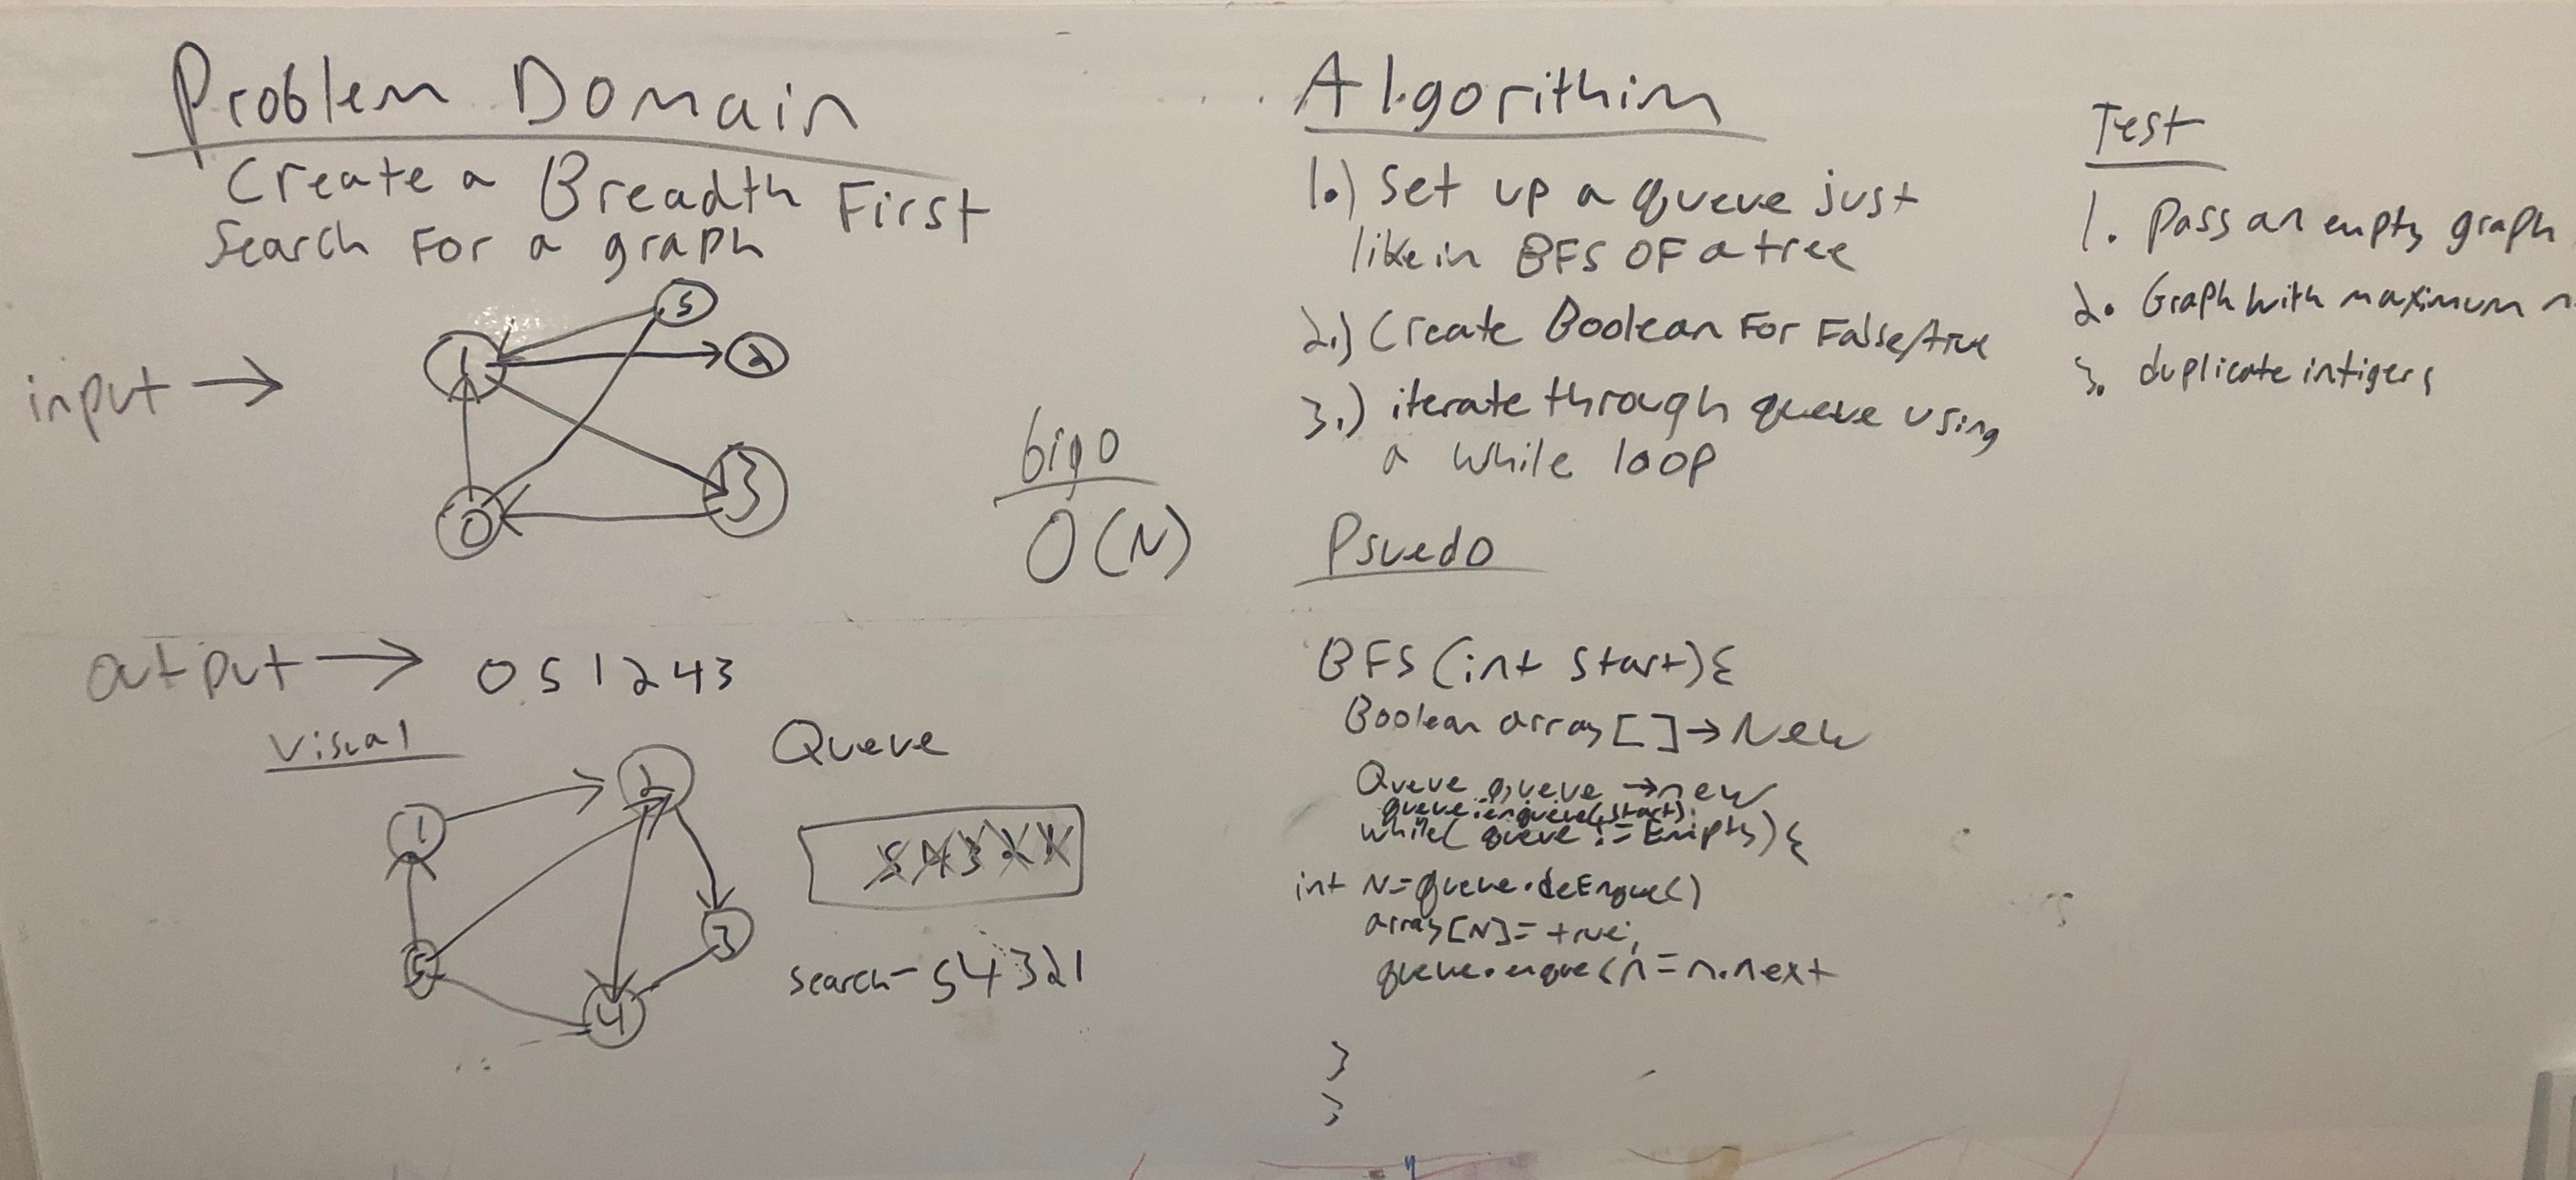 Problem Domain
Create a Breadth First
Search For a graph
input →
5
1
2
3
0
big O
O(N)
output → 0 5 1 2 4 3
Visual
Queue
1
2
5
3
4
5 4 3 2 1
search - 5 4 3 2 1
Algorithim
1.) Set up a queue just
like in BFS OF a tree
2.) Create Boolean For False/true
3.) iterate through queue using
a while loop
Psuedo
BFS (int Start){
Boolean array [ ] → New
Queue queue → new
queue.enqueue(start);
while( queue != Empty) {
int N = queue.deEnque()
array [N] = true;
queue.enque(n = n.next
}
}
Test
1. Pass an empty graph
2. Graph with maximum
3. duplicate intigers